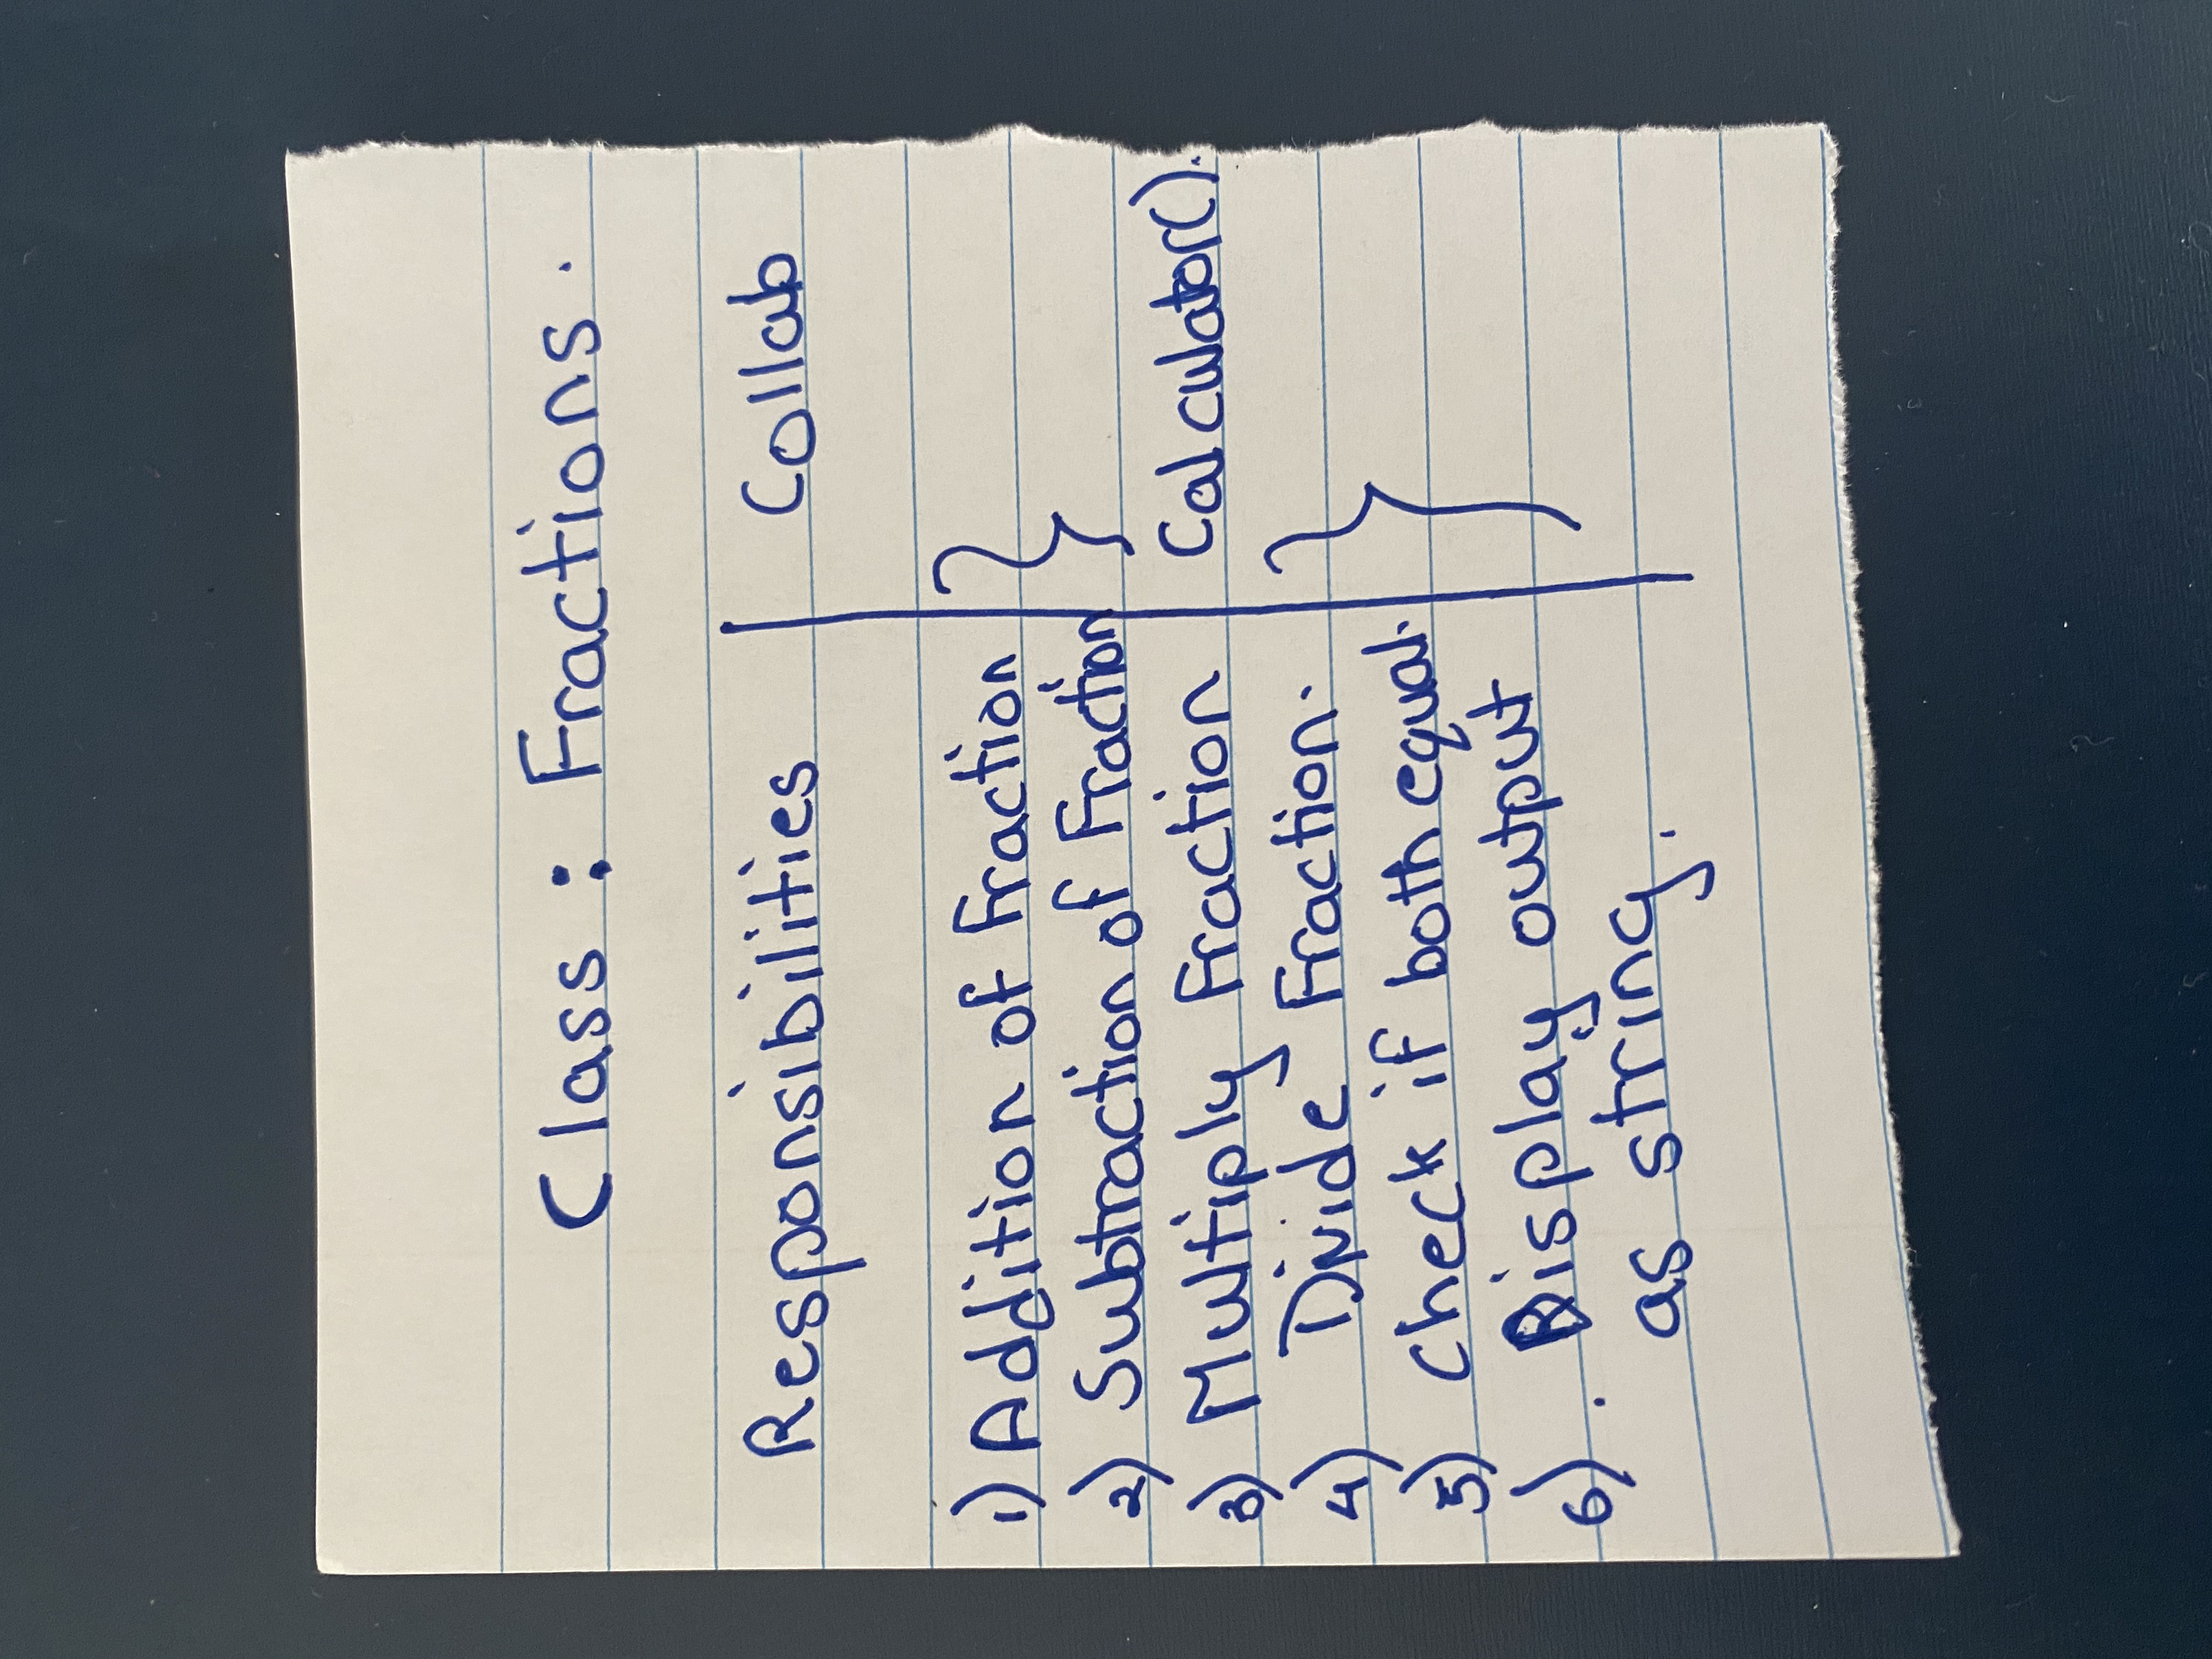 Class : Fractions.
Responsibilities
Collab
1) Addition of Fraction
2) Subtraction of Fraction
3) Multiply Fraction
Calculator().
4) Divide Fraction.
5) Check if both equal.
6) . Display output
as string.